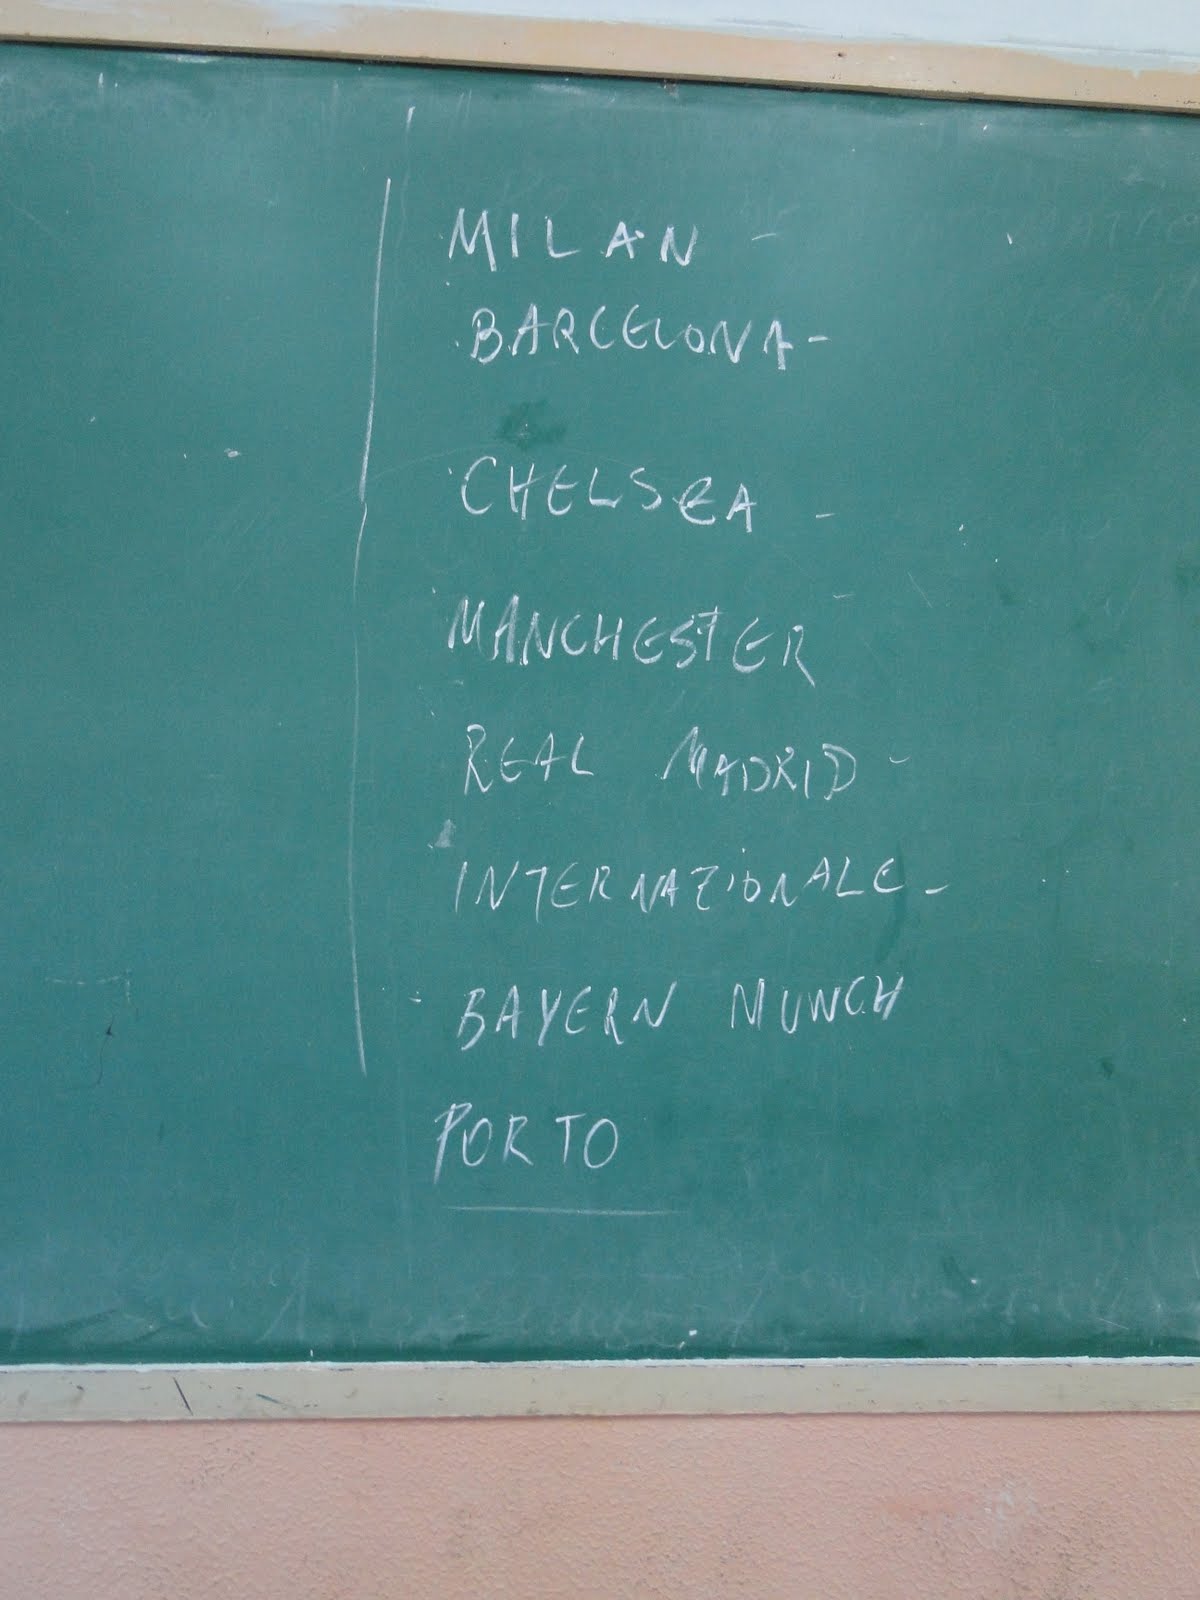 MILAN -
BARCELONA -
CHELSEA -
MANCHESTER
REAL MADRID -
INTERNAZIONALE -
BAYERN MUNCH
PORTO